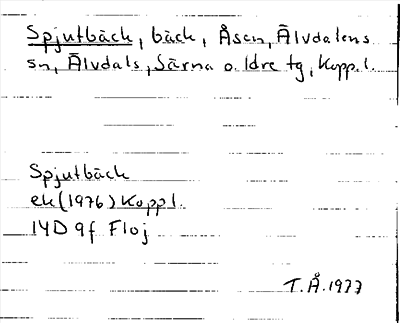 Spjutbäck, bäck, Åsen, Älvdalens
sn, Älvdals, Särna o. Idre tg, Kopp.l.
Spjutbäck
ek (1976) Kopp l.
14D 9f Floj
T.Å. 1977